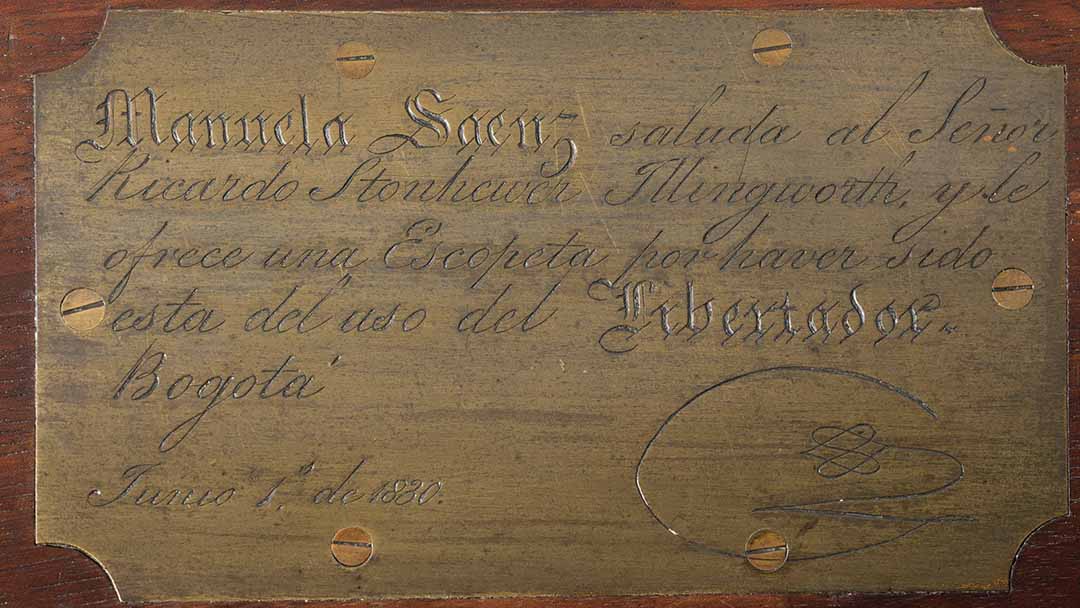 Manuela Saenz saluda al Señor
Ricardo Stonhewer Illingworth, y le
ofrece una Escopeta por haver sido
esta del uso del Libertador.
Bogotá
Junio 1.º de 1830.